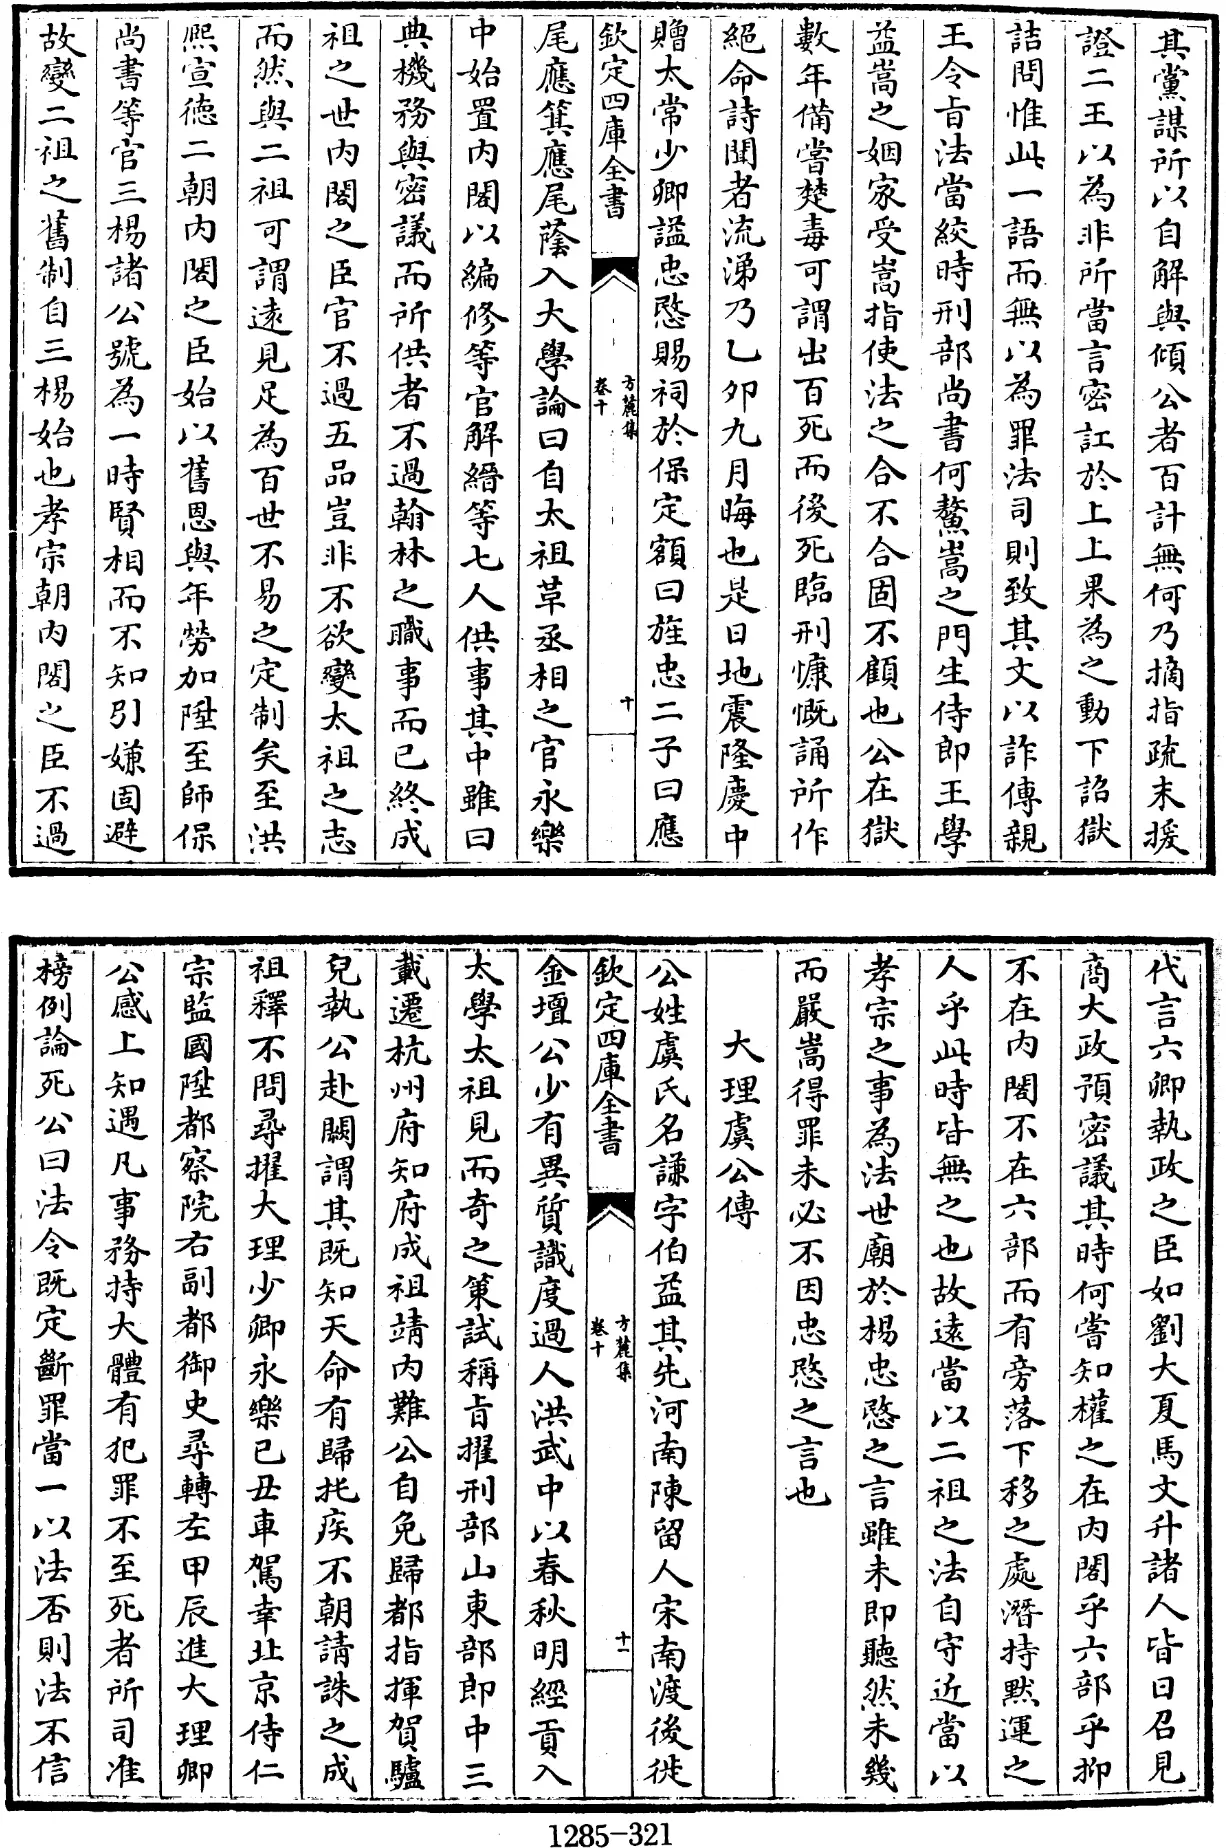 其黨謀所以自解與傾公者百計無何乃摘指疏末援
證二王以為非所當言密訌於上上果為之動下詔獄
詰問惟此一語而無以為罪法司則致其文以詐傳親
王令㫖法當絞時刑部尚書何鰲嵩之門生侍郎王學
益嵩之姻家受嵩指使法之合不合固不顧也公在獄
數年備嘗楚毒可謂出百死而後死臨刑慷慨誦所作
絕命詩聞者流涕乃乙夘九月晦也是日地震隆慶中
贈太常少卿諡忠愍賜祠於保定額曰旌忠二子曰應
欽定四庫全書
方麓集
卷十
十
尾應箕應尾蔭入大學論曰自太祖革丞相之官永樂
中始置内閣以編修等官解縉等七人供事其中雖曰
典機務與密議而所供者不過翰林之職事而已終成
祖之世内閣之臣官不過五品豈非不欲變太祖之志
而然與二祖可謂逺見足為百世不易之定制矣至洪
熈宣徳二朝内閣之臣始以舊恩與年勞加陞至師保
尚書等官三楊諸公號為一時賢相而不知引嫌固避
故變二祖之舊制自三楊始也孝宗朝内閣之臣不過
代言六卿執政之臣如劉大夏馬文升諸人皆日召見
商大政預密議其時何嘗知權之在内閣乎六部乎抑
不在内閣不在六部而有旁落下移之處潛持黙運之
人乎此時皆無之也故逺當以二祖之法自守近當以
孝宗之事為法世廟於楊忠愍之言雖未即聽然未幾
而嚴嵩得罪未必不因忠愍之言也
大理虞公傳
公姓虞氏名謙字伯益其先河南陳留人宋南渡後徙
欽定四庫全書
方麓集
卷十
十一
金壇公少有異質識度過人洪武中以春秋明經貢入
太學太祖見而奇之策試稱㫖擢刑部山東部郎中三
載遷杭州府知府成祖靖内難公自免歸都指揮賀驢
兒執公赴闕謂其既知天命有歸托疾不朝請誅之成
祖釋不問尋擢大理少卿永樂已丑車駕幸北京侍仁
宗監國陞都察院右副都御史尋轉左甲辰進大理卿
公感上知遇凡事務持大體有犯罪不至死者所司准
榜例論死公曰法令既定斷罪當一以法否則法不信
1285-321